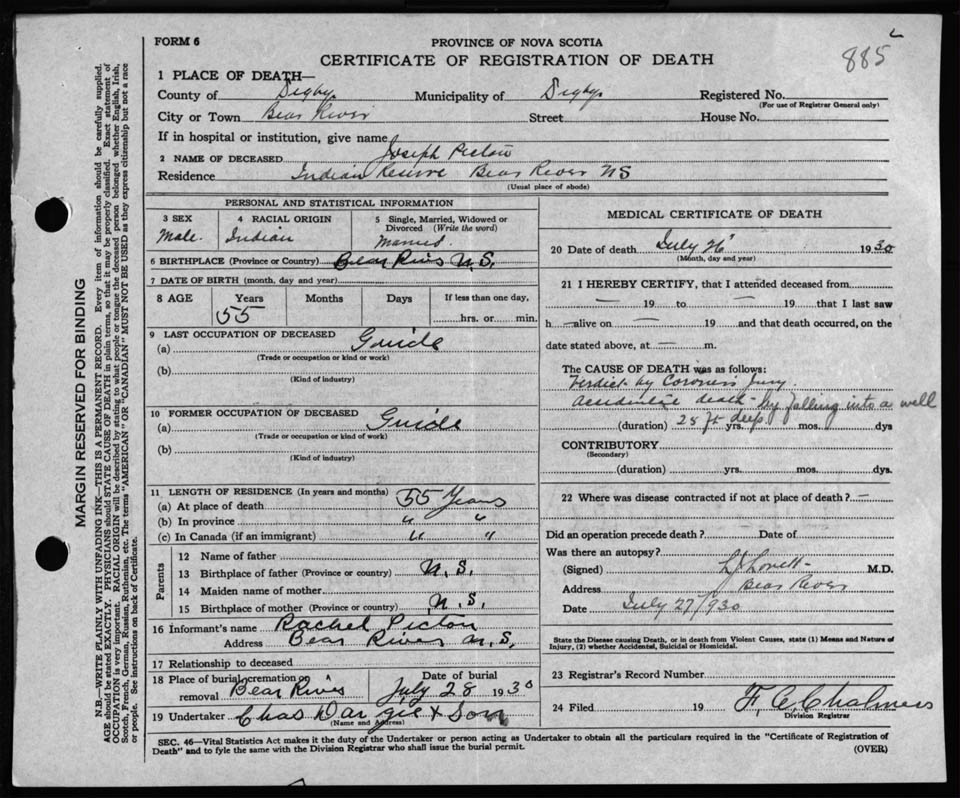 FORM 6
PROVINCE OF NOVA SCOTIA
885
CERTIFICATE OF REGISTRATION OF DEATH
1 PLACE OF DEATH—
County of Digby Municipality of Digby Registered No.
(For use of Registrar General only)
City or Town Bear River Street House No.
If in hospital or institution, give name
2 NAME OF DECEASED Joseph Pictou
Residence Indian Reserve Bear River NS
(Usual place of abode)
PERSONAL AND STATISTICAL INFORMATION
3 SEX 4 RACIAL ORIGIN 5 Single, Married, Widowed or
Divorced (Write the word)
Male. Indian Married.
6 BIRTHPLACE (Province or Country) Bear River N.S.
7 DATE OF BIRTH (month, day and year)
8 AGE Years Months Days If less than one day,
55 hrs. or min.
9 LAST OCCUPATION OF DECEASED
(a) Guide
(Trade or occupation or kind of work)
(b)
(Kind of industry)
10 FORMER OCCUPATION OF DECEASED
(a) Guide
(Trade or occupation or kind of work)
(b)
(Kind of industry)
11 LENGTH OF RESIDENCE (In years and months)
(a) At place of death 55 Years
(b) In province " "
(c) In Canada (if an immigrant) " "
Parents
12 Name of father
13 Birthplace of father (Province or country) N.S.
14 Maiden name of mother
15 Birthplace of mother (Province or country) N.S.
16 Informant's name Rachel Pictou
Address Bear River N.S.
17 Relationship to deceased
18 Place of burial, cremation or Date of burial
removal Bear River July 28 1930
19 Undertaker Chas Dargie & Son
(Name and Address)
MEDICAL CERTIFICATE OF DEATH
20 Date of death July 26 1930
(Month, day and year)
21 I HEREBY CERTIFY, that I attended deceased from
— 19 to — 19 that I last saw
h — alive on — 19 and that death occurred, on the
date stated above, at — m.
The CAUSE OF DEATH was as follows:
Verdict by Coroner's Jury.
death by falling into a well
(duration) 25 ft deep. yrs. mos. dys
CONTRIBUTORY
(Secondary)
(duration) yrs. mos. dys.
22 Where was disease contracted if not at place of death? —
Did an operation precede death? Date of
Was there an autopsy?
(Signed) L J Lovett M.D.
Address Bear River
Date July 27/930
State the Disease causing Death, or in death from Violent Causes, state (1) Means and Nature of
Injury, (2) whether Accidental, Suicidal or Homicidal.
23 Registrar's Record Number
24 Filed 19 F. C. Chalmers
Division Registrar
SEC. 46—Vital Statistics Act makes it the duty of the Undertaker or person acting as Undertaker to obtain all the particulars required in the "Certificate of Registration of
Death" and to fyle the same with the Division Registrar who shall issue the burial permit. (OVER)
MARGIN RESERVED FOR BINDING
N.B.—WRITE PLAINLY WITH UNFADING INK—THIS IS A PERMANENT RECORD. Every item of information should be carefully supplied.
AGE should be stated EXACTLY. PHYSICIANS should STATE CAUSE OF DEATH in plain terms, so that it may be properly classified. Exact statement of
OCCUPATION is very important. RACIAL ORIGIN will be described by stating to what people or tongue the deceased person belonged whether English, Irish,
Scotch, French, German, Russian, Ruthenian, etc. The terms "AMERICAN" or "CANADIAN" MUST NOT BE USED as they express citizenship but not a race
or people. See instructions on back of Certificate.